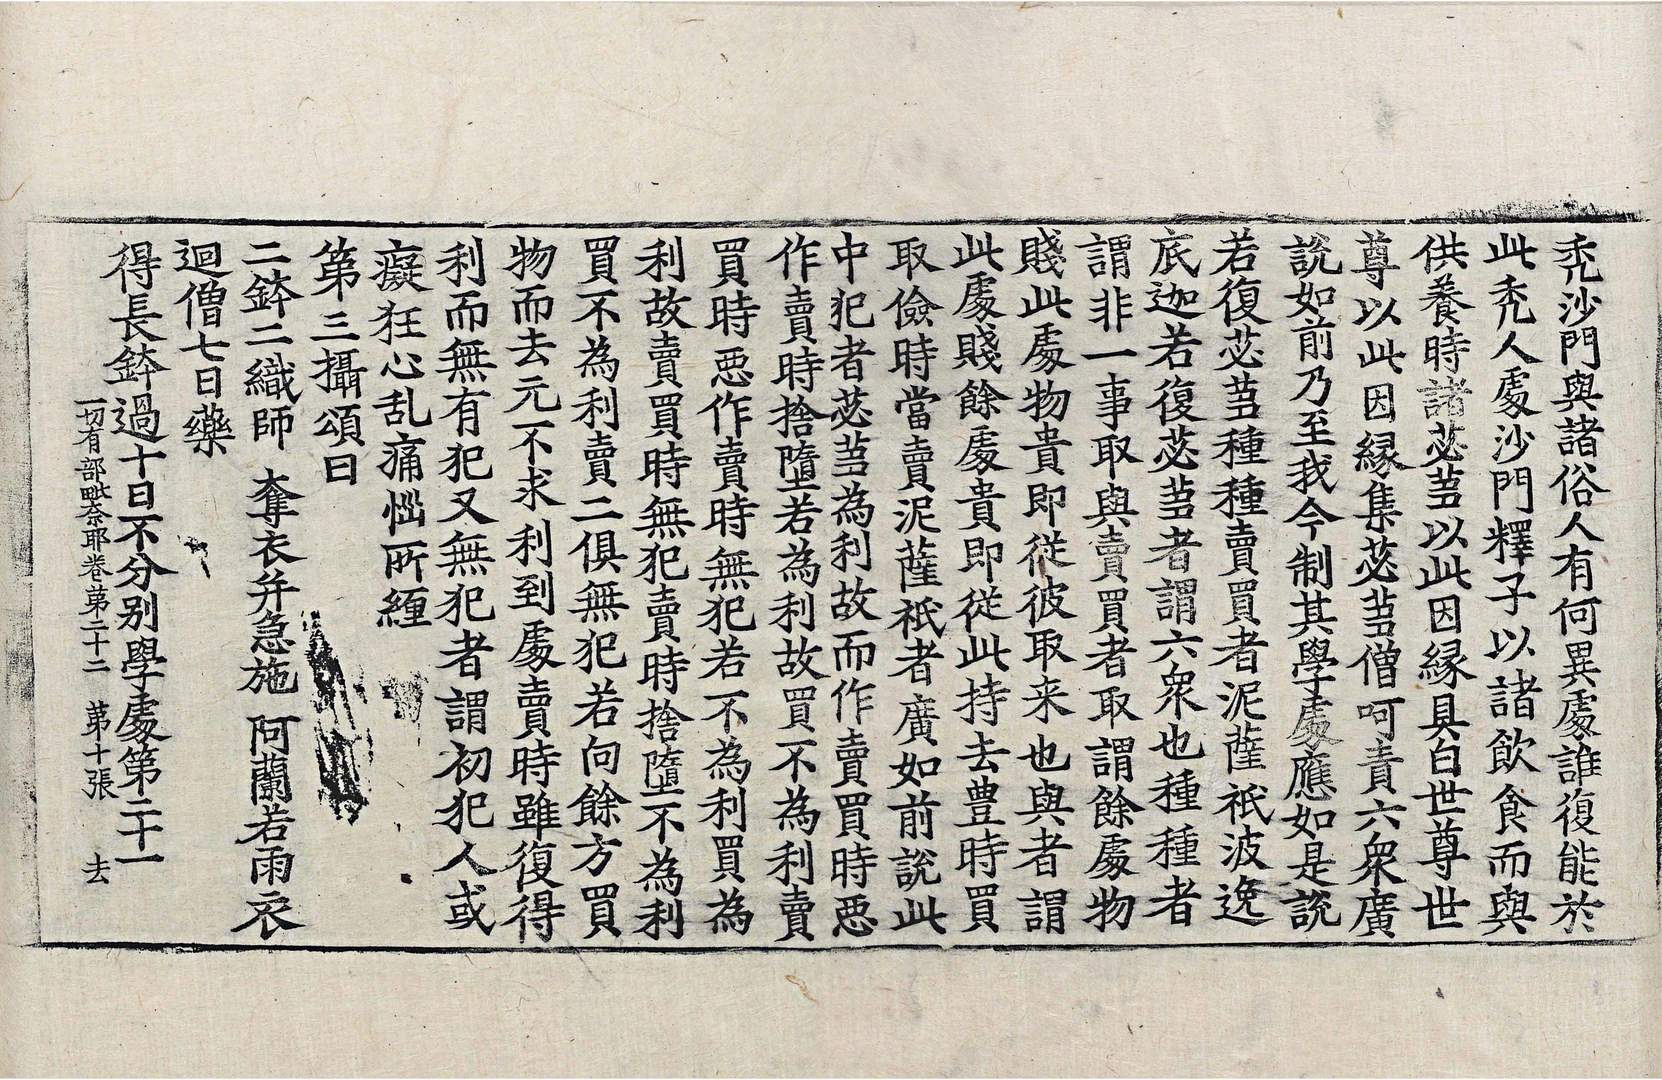 禿沙門與諸俗人有何異處誰復能於
此禿人處沙門釋子以諸飲食而與
供養時諸苾芻以此因緣具白世尊世
尊以此因緣集苾芻僧呵責六衆廣
說如前乃至我今制其學處應如是說
若復苾芻種種賣買者泥薩祇波逸
底迦若復苾芻者謂六衆也種種者
謂非一事取與賣買者取謂餘處物
賤此處物貴即從彼取来也與者謂
此處賤餘處貴即從此持去豊時買
取儉時當賣泥薩祇者廣如前說此
中犯者苾芻為利故而作賣買時惡
作賣時捨墮若為利故買不為利賣
買時惡作賣時無犯若不為利買為
利故賣買時無犯賣時捨墮不為利
買不為利賣二俱無犯若向餘方買
物而去元不求利到處賣時雖復得
利而無有犯又無犯者謂初犯人或
癡狂心乱痛惱所纏
第三攝頌曰
二鉢二織師　奪衣并急施　阿蘭若雨衣
迴僧七日藥
得長鉢過十日不分別學處第二十一
一切有部毗奈耶卷第二十二　第十張　去